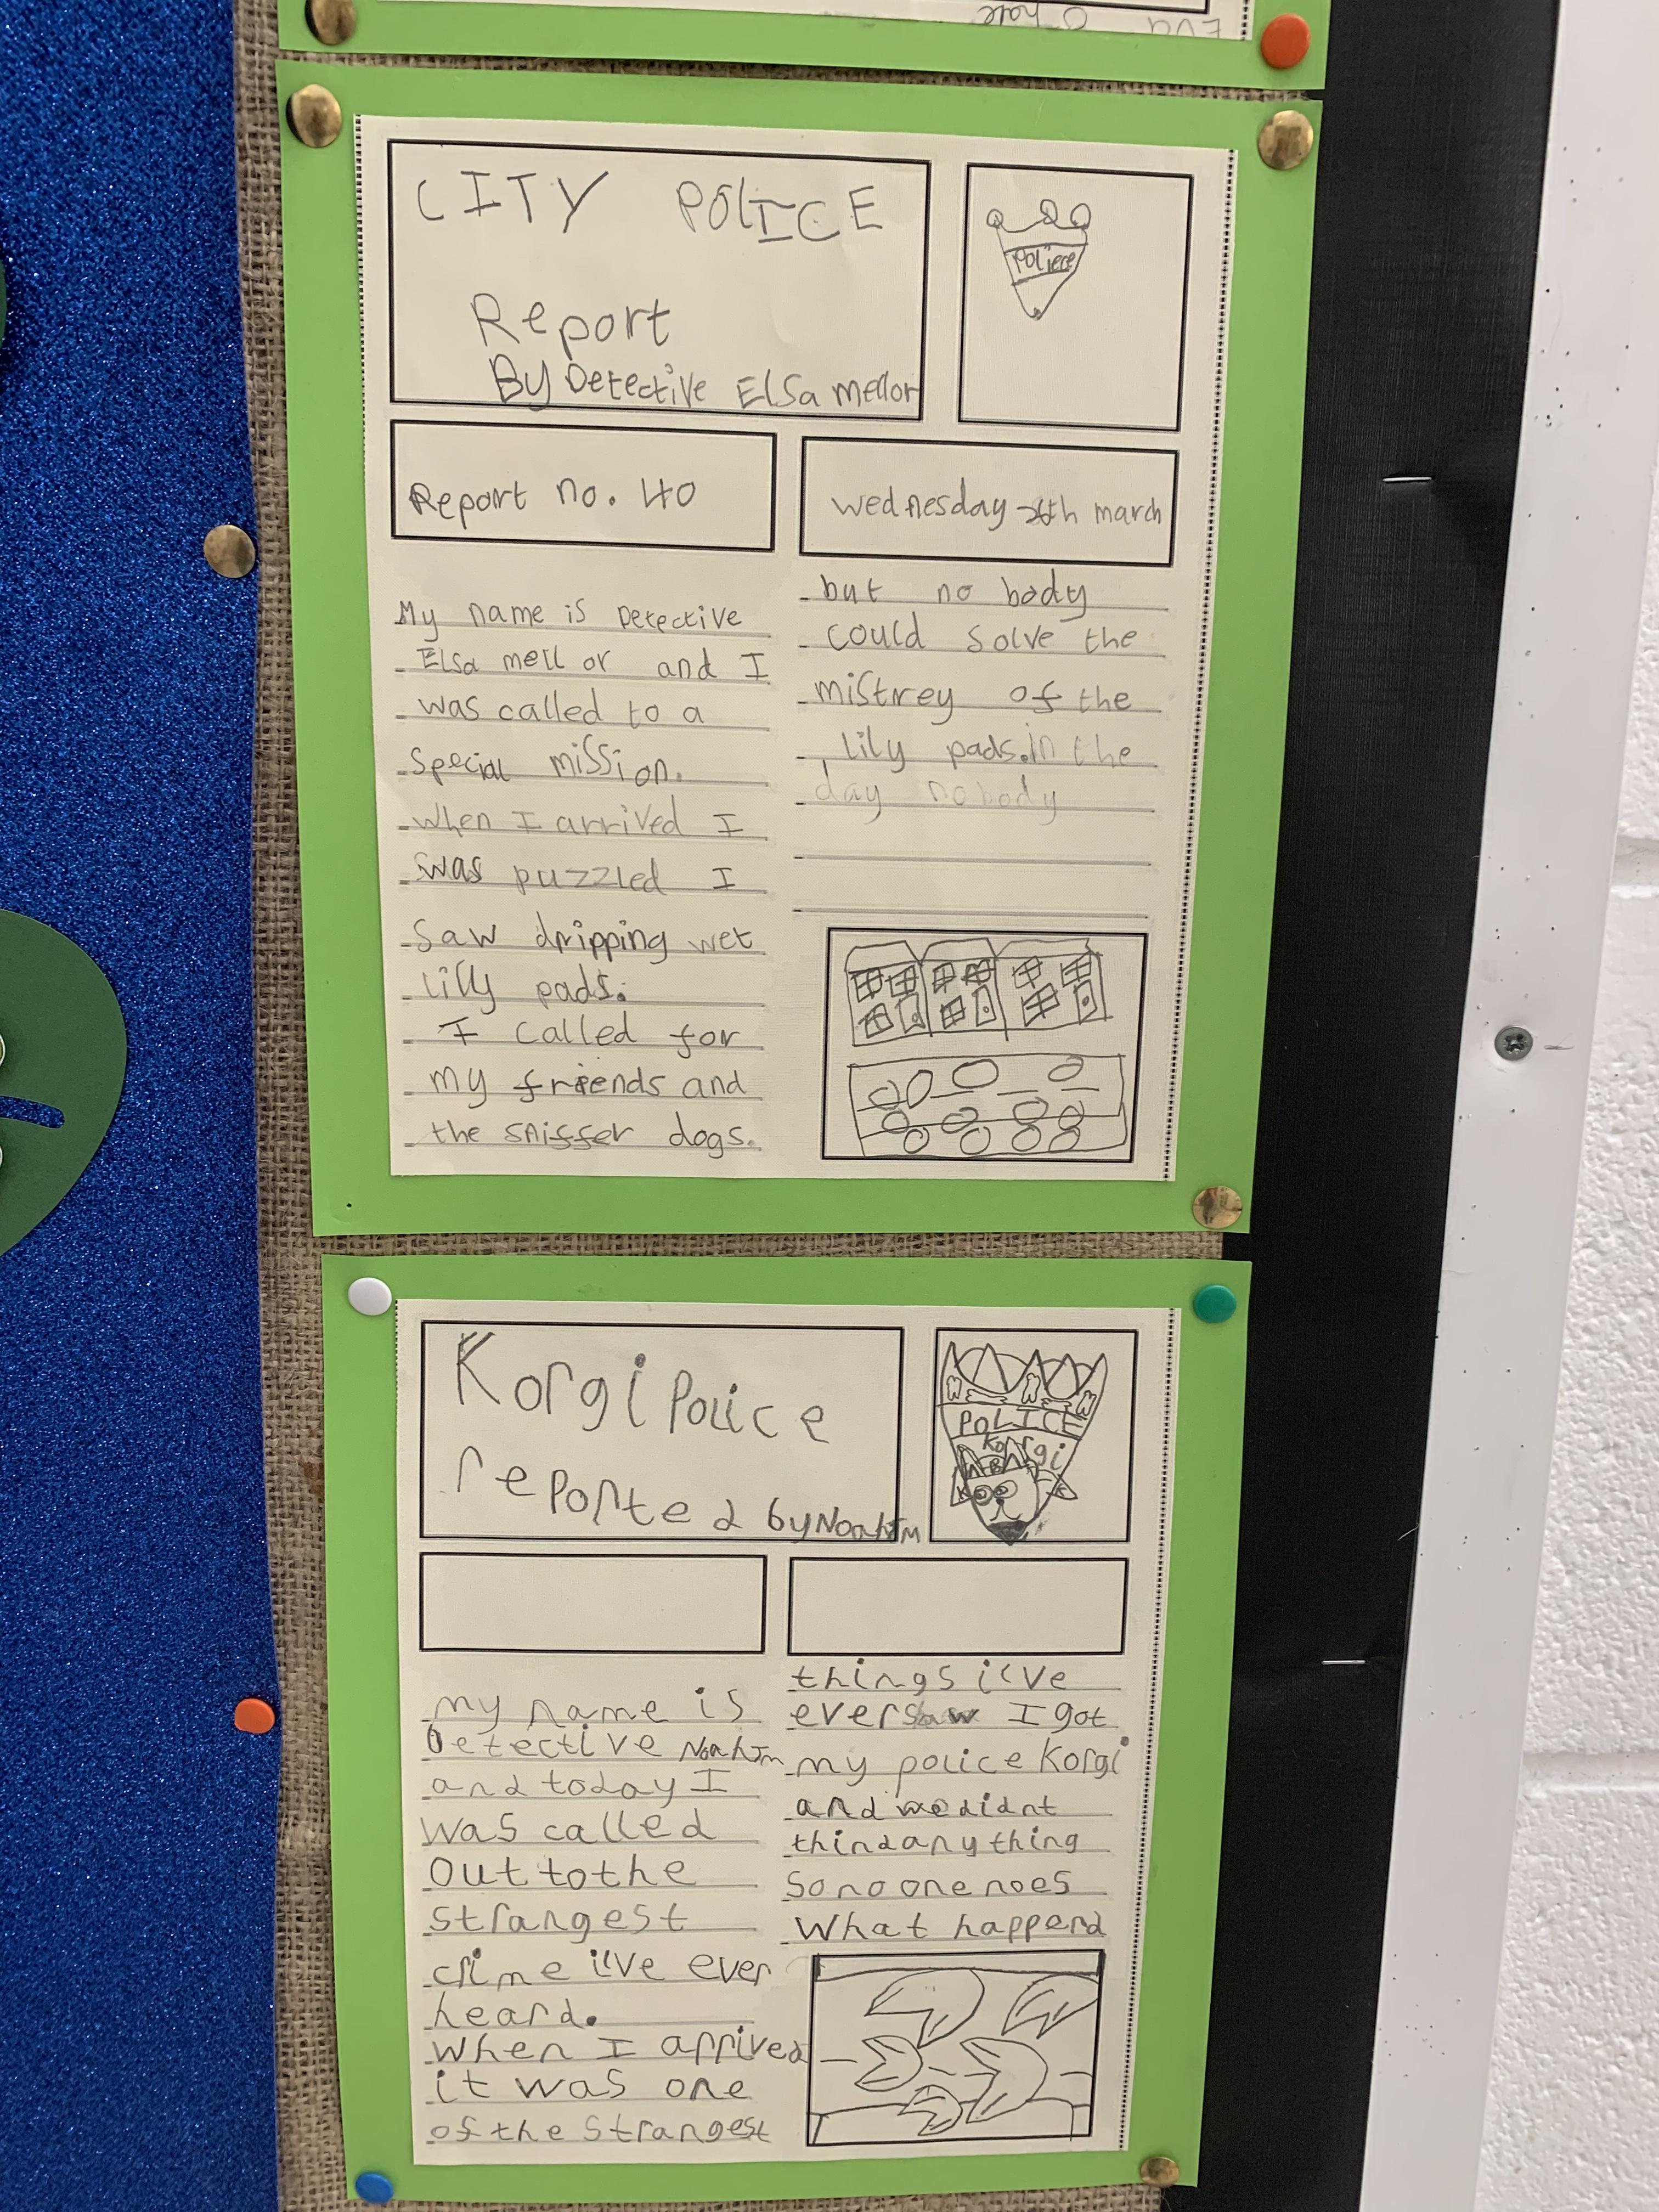 Eva O'hare
CITY POLICE
Report
By Detective Elsa mellor
Poliece
Report no. 40
wednesday 26th march
My name is Detective
Elsa mellor and I
was called to a
special mission.
when I arrived I
was puzzled I
saw dripping wet
lilly pads.
I called for
my friends and
the sniffer dogs.
but no body
could solve the
mistrey of the
lily pads.in the
day nobody
Korgi Police
reported by Noah
POLICE
Korgi
my name is
Detective Noah
and today I
was called
out to the
strangest
crime i've ever
heard.
when I arrived
it was one
of the strangest
things i've
ever saw I got
my police Korgi
and we didnt
thind any thing
so no one noes
what happend